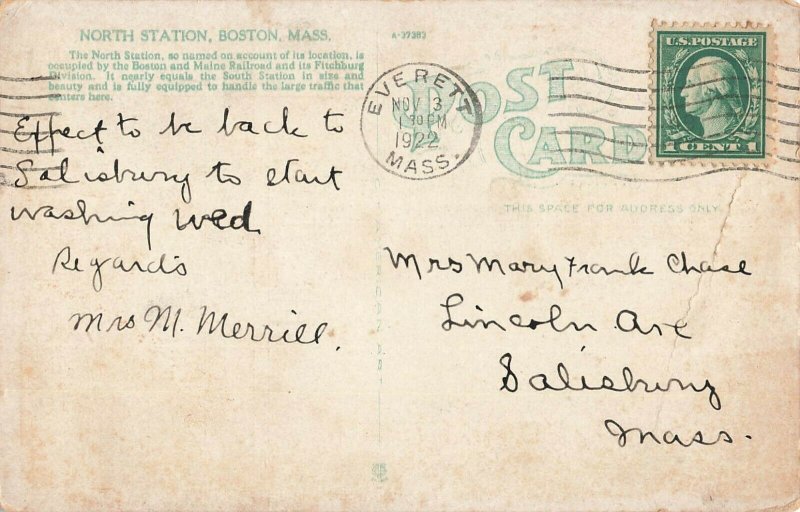 NORTH STATION, BOSTON, MASS.
The North Station, so named on account of its location, is
occupied by the Boston and Maine Railroad and its Fitchburg
Division. It nearly equals the South Station in size and
beauty and is fully equipped to handle the large traffic that
centers here.
Expect to be back to
Salisbury to start
washing Wed
Regards
Mrs M. Merrill.
A-37383
POST
CARD
EVERETT
NOV 3
1 30 PM
1922
MASS.
U.S. POSTAGE
1 CENT 1
THIS SPACE FOR ADDRESS ONLY
Mrs Mary Frank Chase
Lincoln Ave
Salisbury
Mass.